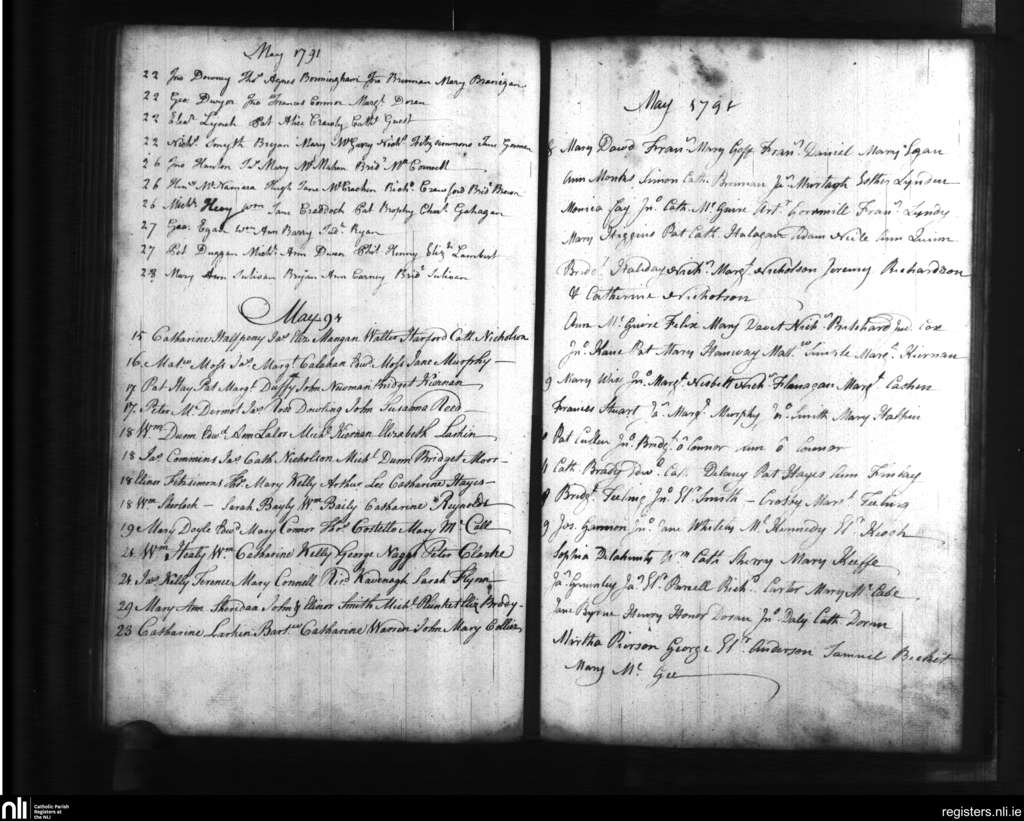 May 1791
22 Jno Downey Thos Agnes Bormingham Jno Brennan Mary Branigan
22 Geo. Dwyer Jno Frances Connor Margt Doran
22 Elizh Lynch Pat Alice Crawly Cathe Guest
22 Nichs Smyth Bryan Mary McGarry Nichs Fitzsimmons Jane
26 Jno Hanlon Jas Mary McMahon Bridt McConnell
26 McNamara Hugh Jane McCracken Richd Crawford Bridt Brown
26 Michl Heny Wm Jane Craddock Pat Brophy Chas Gahagan
27 Geo. Egan Wm Ann Barry Judh Ryan
27 Pat Duggan Michl Ann Dunn Phil Henny Elizh Lambert
28 Mary Ann Sulivan Bryan Ann Carney Bridt Sulivan
May 91
15 Catharine Halfpeny Jas Eliz Mangan Walter Harford Cath. Nicholson
16 Matw Moss Jas Margt Calahan Edwd Moss Jane Murphy
17 Pat Hay Pat Margt Duffy John Newman Bridget Kiernan
17 Peter McDermot Jas Rose Dowling John Susanna Reed
18 Wm Dunn Edwd Ann Lalor Michl Kiernan Elizabeth Larkin
18 Jas Commins Jas Cath Nicholson Michl Dunn Bridget Moor
18 Elinor Fitsimons Thos Mary Kelly Arthur Lee Catharine Hayes
18 Wm Sherlock - Sarah Bayly Wm Baily Catharine Reynolds
19 Mary Doyle Edwd Mary Connor Thos Costello Mary McCall
21 Wm Heaty Wm Catharine Kelly George Naggs Peter Clarke
24 Jas Kelly Terence Mary Connell Ricd Kavenagh Sarah Flynn
29 Mary Ann Sheridan John & Elinor Smith Michl Plunket Eliz Briddy
23 Catharine Larkin Bartw Catharine Warren John Mary Collier
May 1791
8 Mary David Frans Mary Goff Frans Daniel Mary Egan
Ann Monks Simon Cath. Brennan Jas Murtagh Esther Lynden
Monica Fay Jno Cath. McGuire Artr Cornmill Frans Lyndy
Mary Higgins Pat Cath. Halagan Adam Neile Ann Quinn
Bridt Haliday Nichs Margt Nicholson Jeremy Richardson
& Catherine Nicholson
Ann McGuire Felix Mary Nichs Pritchard Jud. Cox
Jno Kane Pat Mary Hanway Mattw Margt Kiernan
9 Mary Wise Jno Margt Nesbitt Nichs Flanagan Margt Cashen
Frances Stuart Jas Margt Murphy Jno Smith Mary Halpin
Pat Cullen Jno Bridgt O Connor Ann O Connor
Cath Brady Edwd Cath Delany Pat Hayes Ann Finlay
Bridgt Feeling Jno Elr Smith - Crosby Margt Feeling
9 Jos. Gannon Jno Jane Whiteley Ml Kennedy Elr Keogh
Sophia Delahunte Wm Cath Sherry Mary Keeffe
Jas Grumley Jas Elr Parnell Richd Carter Mary McCabe
Jane Byrne Henry Honor Doran Jno Daly Cath Doran
Martha Pierson George Elr Anderson Samuel Becket
Mary Mc Gee
nli
Catholic Parish
Registers at
the NLI
registers.nli.ie